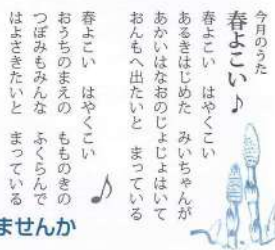 今月のうた
春よこい♪
春よこい　はやくこい
あるきはじめた　みいちゃんが
あかいはなおのじょじょはいて
おんもへ出たいと　まっている
春よこい　はやくこい
おうちのまえの　もものきの
つぼみもみんな　ふくらんで
はよさきたいと　まっている
ませんか